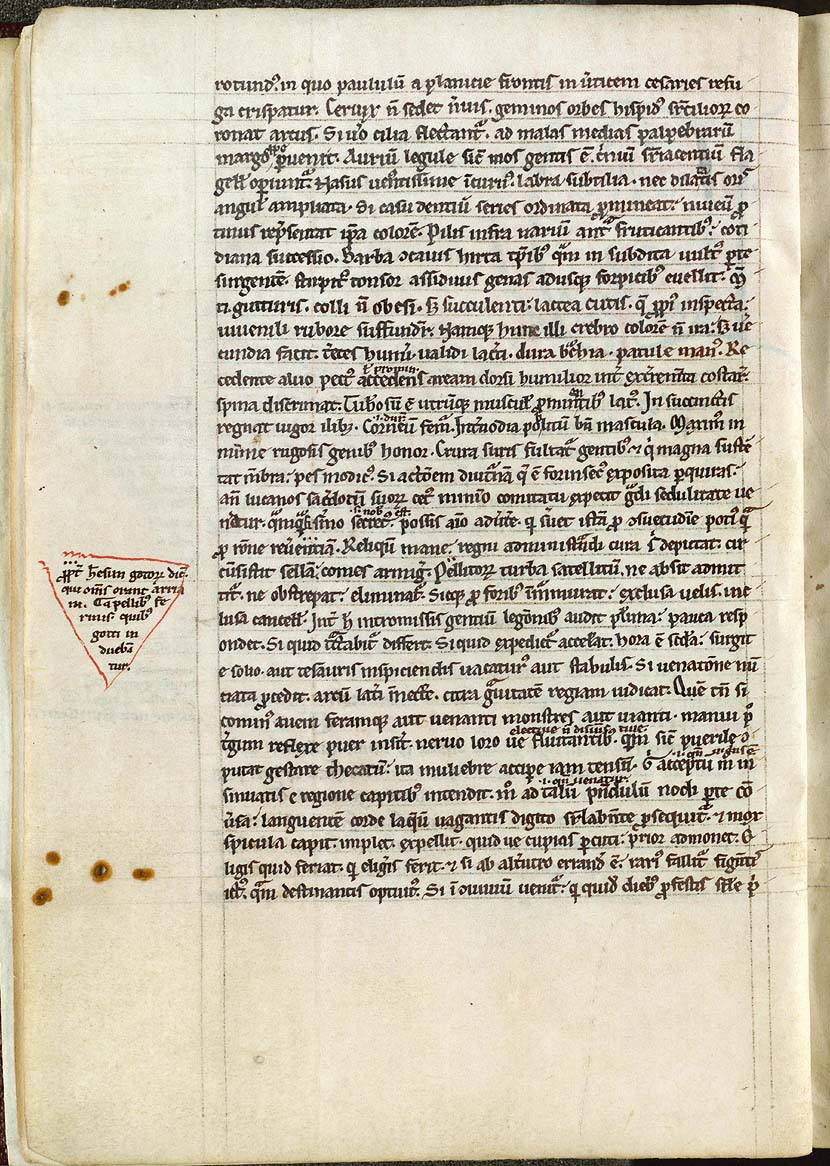 rotund᷒. in quo paululū a planicie frontis in ũticem cesaries refu
ga crispatur. Ceruix ñ sedet ñuis. geminos orbes hispid᷒ suꝑcilioꝝ co
ronat arcus. Si uͦo cilia flectantᷣ. ad malas medias palpebrarū
margo ꝑuenit. Auriū legule sic̃ mos gentis ē. crinū suꝑiacentiū fla
gell᷒ operiunt᷑. Nasus uenustissime incuru᷒. labra subtilia. nec dilatatis oris
angul᷒ ampliata. Si casu dentiū series ordinata ꝓmineat: niueū ꝓ
tinus rep̃sentat ip̃a colorē. Pilis infra nariū antra fruticantib᷒: coti
diana succesio. Barba ↄcauis hirta tp̃ib᷒ quam in subdita uult᷒ parte
surgentē. stirpit᷑ tonsor assiduus genas adusque forpicib᷒ euellit. M̃
ti gutturis. colli ñ obesi. s; succulenti: lactea cutis. que ꝓpi᷒ inspecta:
iuuenili rubore suffundit᷑. Namque hunc illi crebro colorē ñ ira: s; ue
cundia facit. Teretes humi. ualidi lac̃ti. dura brachia. patule man᷒. Re
cedente aluo pect᷒ accedens aream dorsi humilior inter excrementa costaꝝ
.i. ꝓpinq̃
spina discriminat. Tuƀosū ē utrūque muscul᷒ ꝓminentib᷒ lat᷒. In succinctis
regnat uigor ilib᷒. Corneū fem᷒. Internodia poplitū bñ mascula. Maxim᷒ in
.i. durū
minime rugosis genib᷒ honor. Crura suris fulta gentib᷒ ⁊ qui magna susten
tat mẽbra: pes modic᷒. Si actōem diuturnā que ē forinsec᷒ exposita perquiras:
antelucanos sacerdotū suoꝝ cet᷒ minimo comitatu expetit g̃ndi sedulitate ue
neratur. quamquam si sermo secret᷒. possis aīo aduertere. quod seruet istā pro ↄsuetudine poti᷒ quā
pro rōne reuerentiam. Reliquū mane: regni administrandi cura sibi deputat. cir
cūsistit sellā comes armig᷑. Pellitoꝝ turba satellitū. ne absit admit
tit᷑. ne obstrepat: eliminat᷑. Sicque pro foribus immurmurat: exclusa uelis. inc
lusa cancell᷒. Inter hec intromissis gentiū legōnib᷒ audit plurima: pauca resp
ondet. Si quid tractabit᷑ differt. Si quid expediet᷑ accelerat. Hora ē secda: surgit
e solio. aut tesauris inspiciendis uacatur᷒ aut stabulis. Si uenatōne nun
ciata ꝓcedit. arcū lateri innectere. citra grauitatē regiam iudicat. Quē tn̄ si
comin᷒ auem feramque aut uenanti monstres aut uianti. manui post
tergum reflexe puer inserit. neruo loro ue fluitantib᷒. quem sic̃ puerile ↄ
putat gestare thecatū: ita muliebre accipe iam tensū. g̃ acceptū m̃ in
sinuatis e regione capitib᷒ intendit. m̃ ad talū pendulū nodi parte con
uersa: languentē corde laqueū uagantis digito suꝑlabente ꝓsequit᷑. ⁊ mox
spicula capit. implet. expellit. quid ue cupias percuti: prior admonet. E
ligis quid feriat. quod eligis ferit. ⁊ si ab alterutro errandū ē: rari᷒ fallit᷑ figentis
ict᷒. quam destinantis optuit᷒. Si in ↄuiuiū uenit᷑: quod quidē dieb᷒ ꝓfestis simile pri
ꝓpt᷑ hesim gotoꝝ dic̃.
qui om̃s erant arria
ni. Ca pellib᷒ fe
rinis quib᷒
gotti in
dueban
tur.